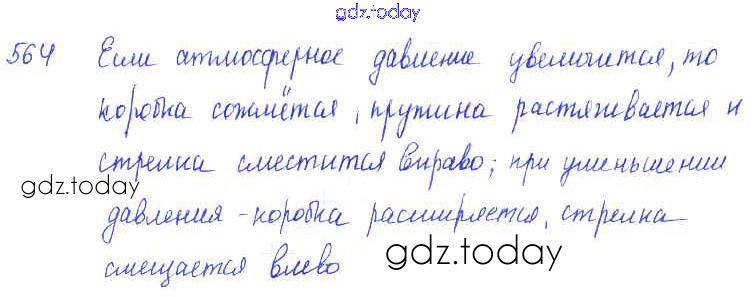 gdz.today
564 Если атмосферное давление увеличится, то
коробка сожмётся, пружина растягивается и
стрелка сместится вправо; при уменьшении
gdz.today
давления - коробка расширяется, стрелка
смещается влево
gdz.today